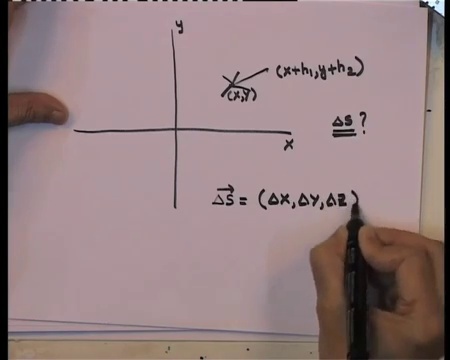 y
(x+h₁, y+h₂)
(x,y)
Δs ?
x
Δs⃗ = (Δx, Δy, Δz)